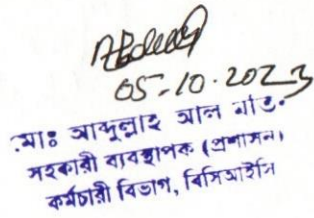 05-10-2023
মোঃ আব্দুল্লাহ আল
সহকারী ব্যবস্থাপক (প্রশাসন)
কর্মচারী বিভাগ, বিসিআইসি